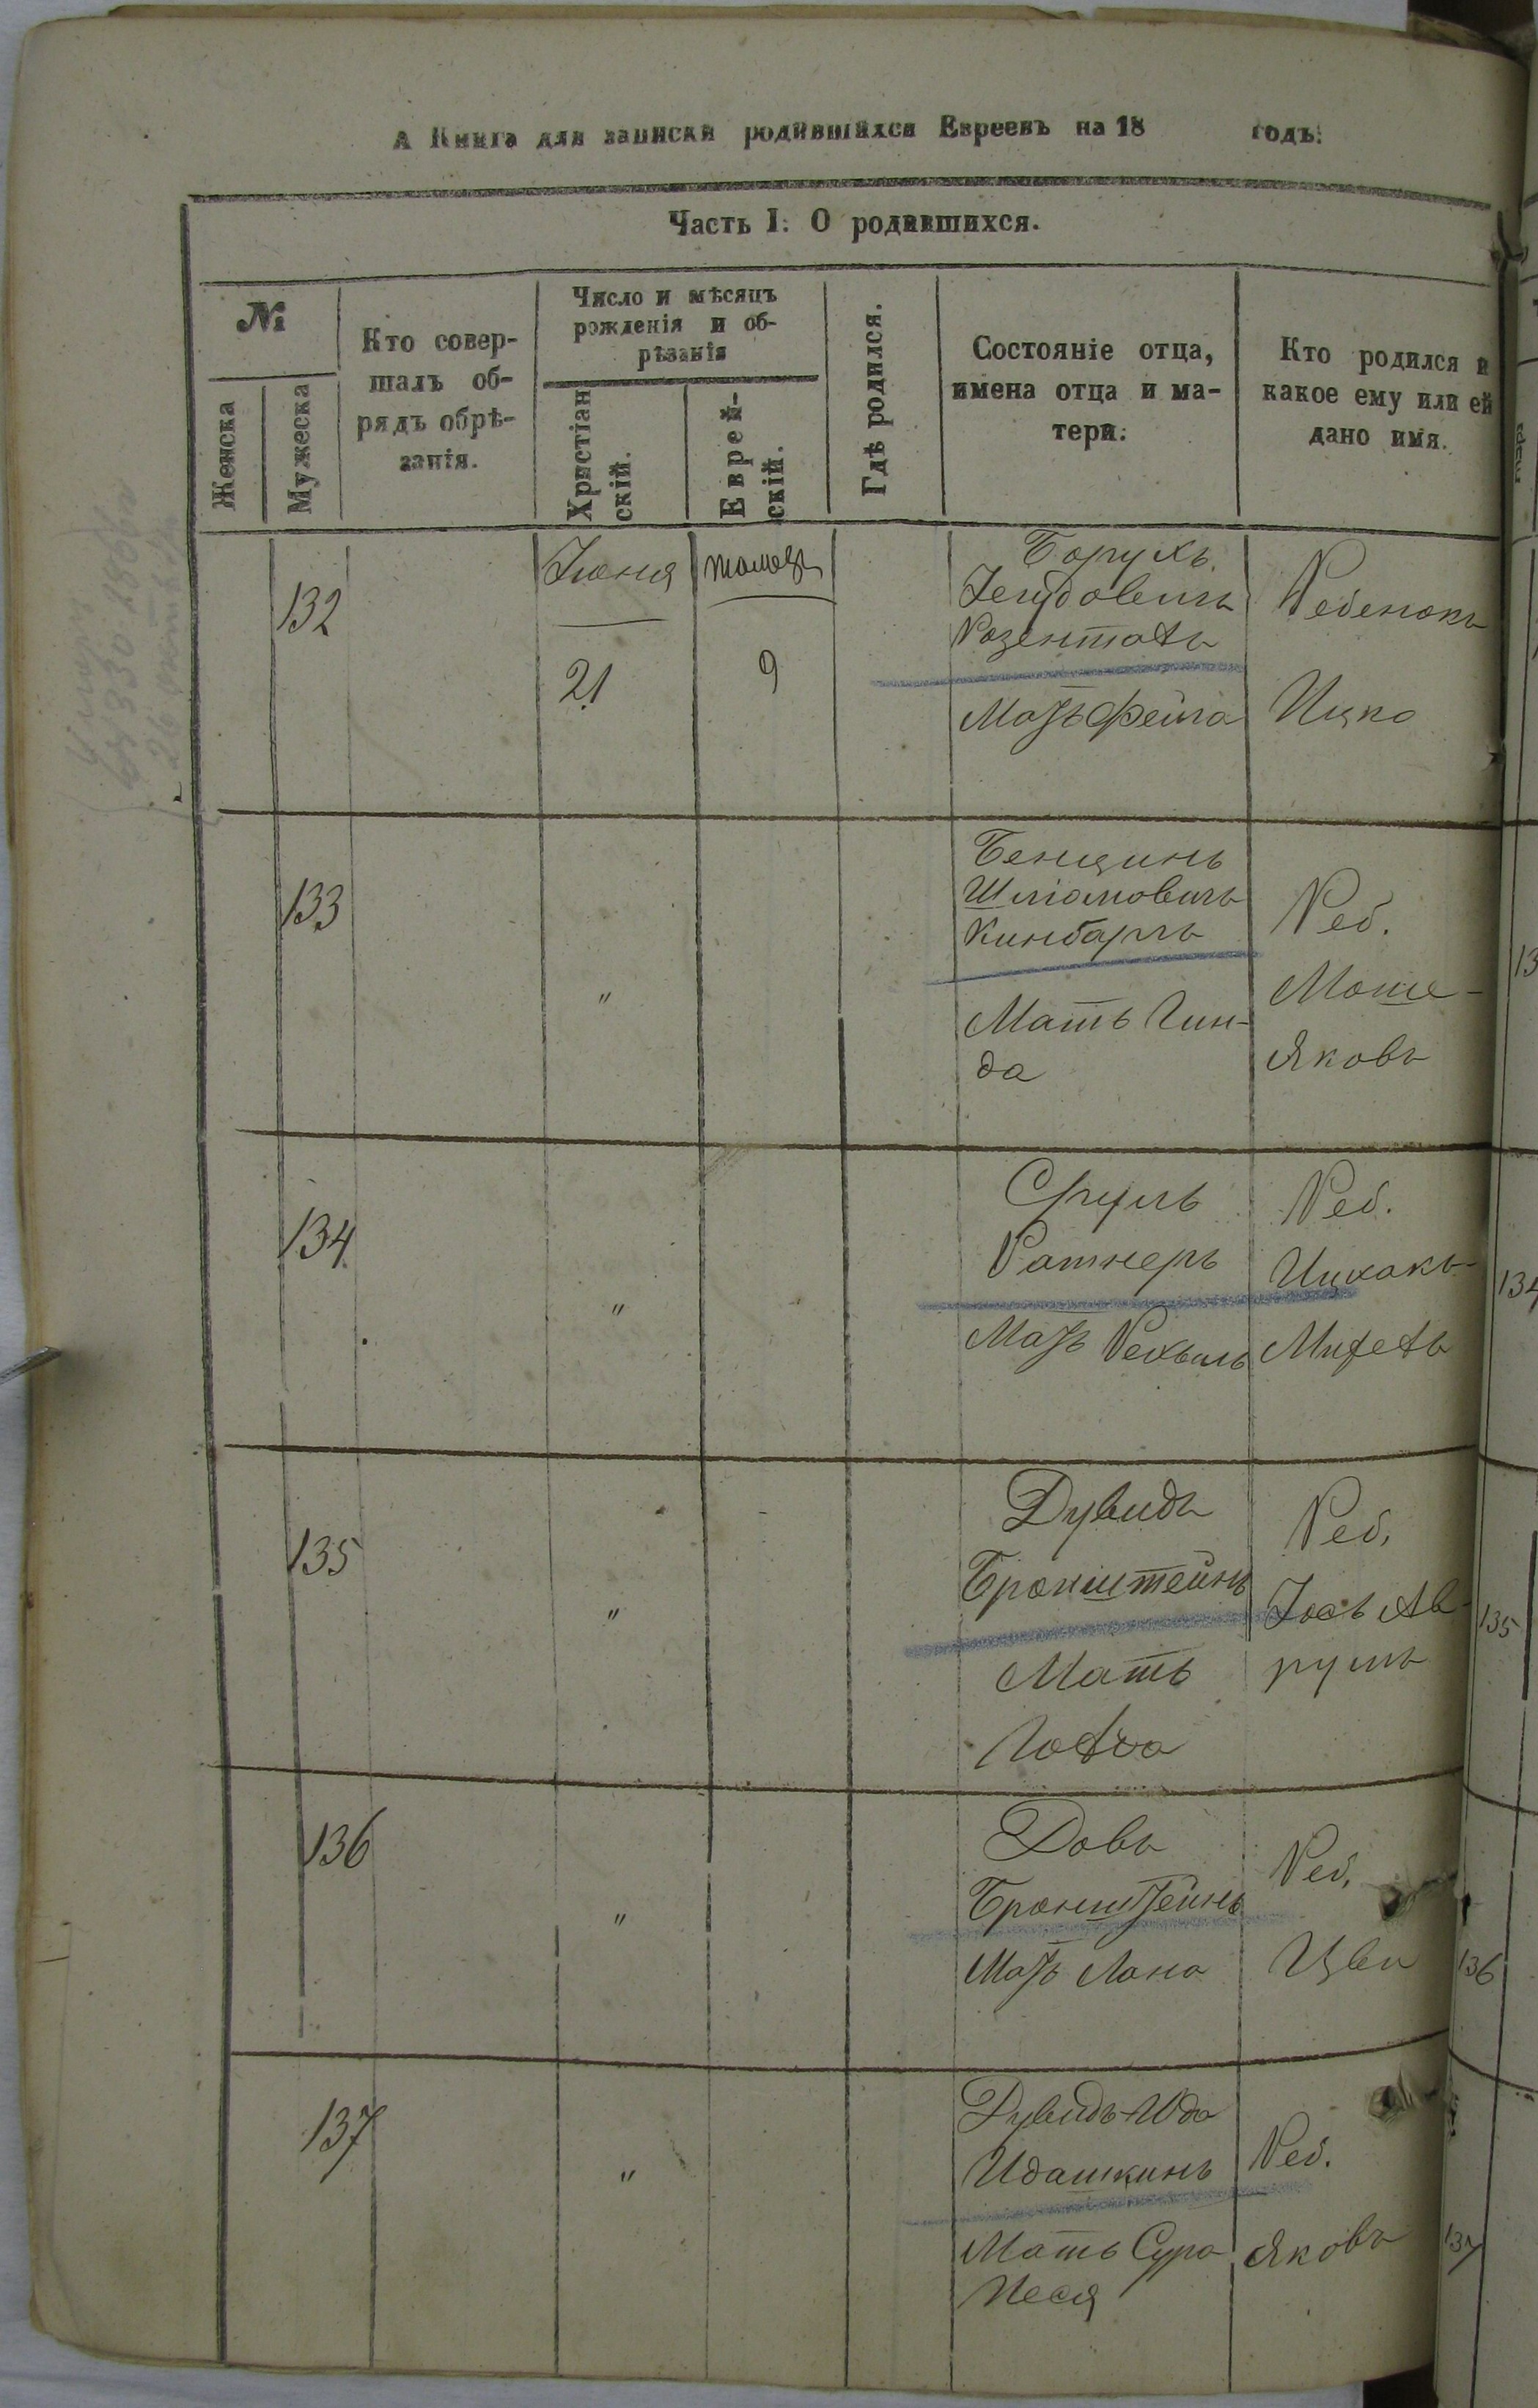 А Книга для записки родившихся Евреевъ на 18 годъ:
Часть I: О родившихся.
№
Женска
Мужеска
Кто совер-
шалъ об-
рядъ обрѣ-
занія.
Число и мѣсяцъ
рожденія и об-
рѣзанія
Христіан
скій.
Еврей-
скій.
Гдѣ родился.
Состояніе отца,
имена отца и ма-
тери:
Кто родился и
какое ему или ей
дано имя.
132
Іюня
21
9
Борухъ
Іегудовичъ
Розенталь
Мать Фейга
Ребенокъ
Ицко
133
"
Бенцинъ
Шліомовичъ
Кинбаргъ
Мать Гин-
да
Реб.
Моше-
Яковъ
134
"
Сруль
Ратнеръ
Мать Рехыль
Реб.
Ицхакъ-
Михель
135
"
Дувидъ
Бронштейнъ
Мать
Голда
Реб.
Іось Ав-
румъ
136
"
Довъ
Бронштейнъ
Мать Хана
Реб.
Цви
137
"
Дувидъ-Юда
Идашкинъ
Мать Сура
Песя
Реб.
Яковъ
13
134
135
136
137